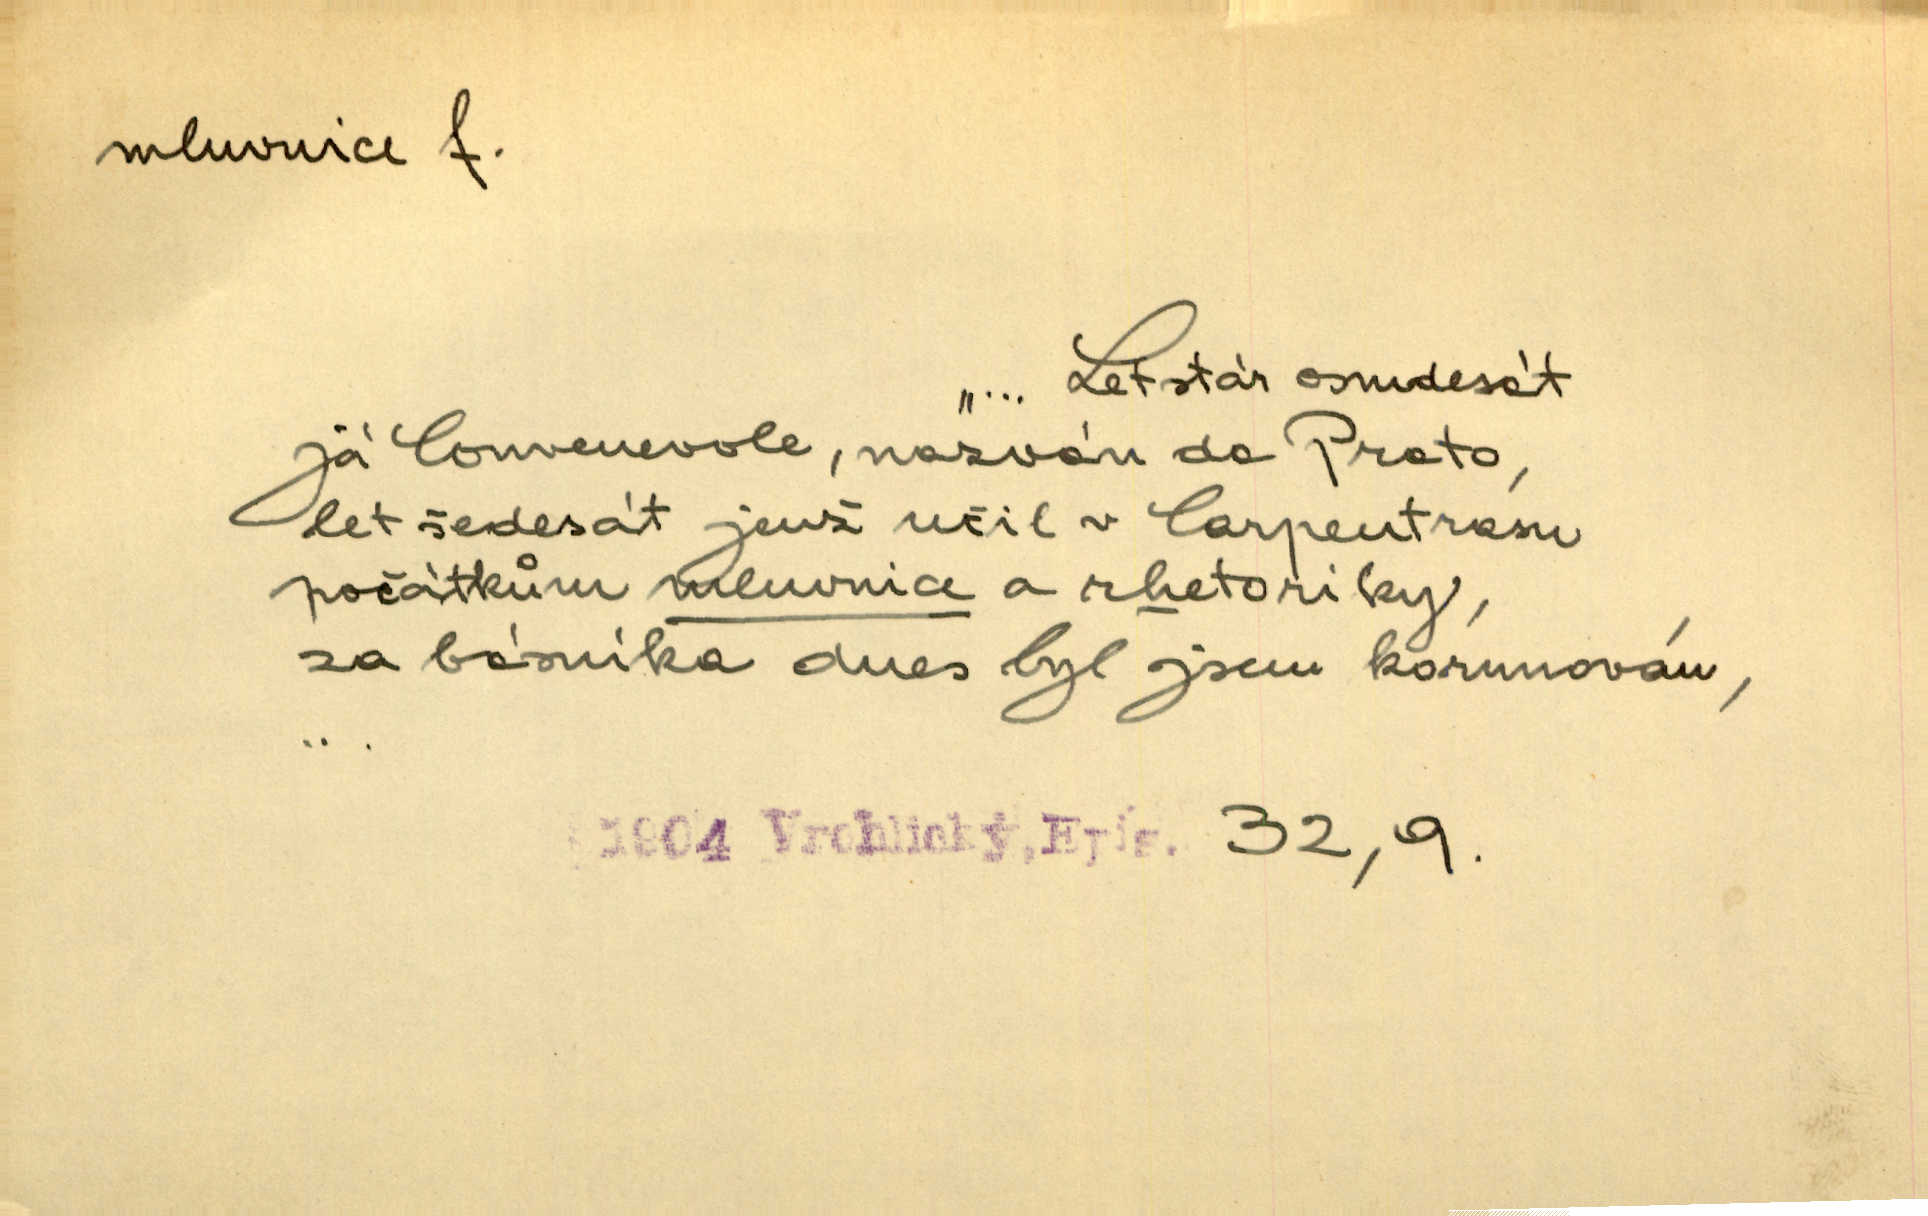 mluvnice f.
„... Let stár osmdesát
já Convenevole, nazván da Prato,
let šedesát jenž učil v Carpentrasu
počátkům mluvnice a rhetoriky,
za básníka dnes byl jsem korunován,
...
1904 Vrchlický, Epis. 32, 9.